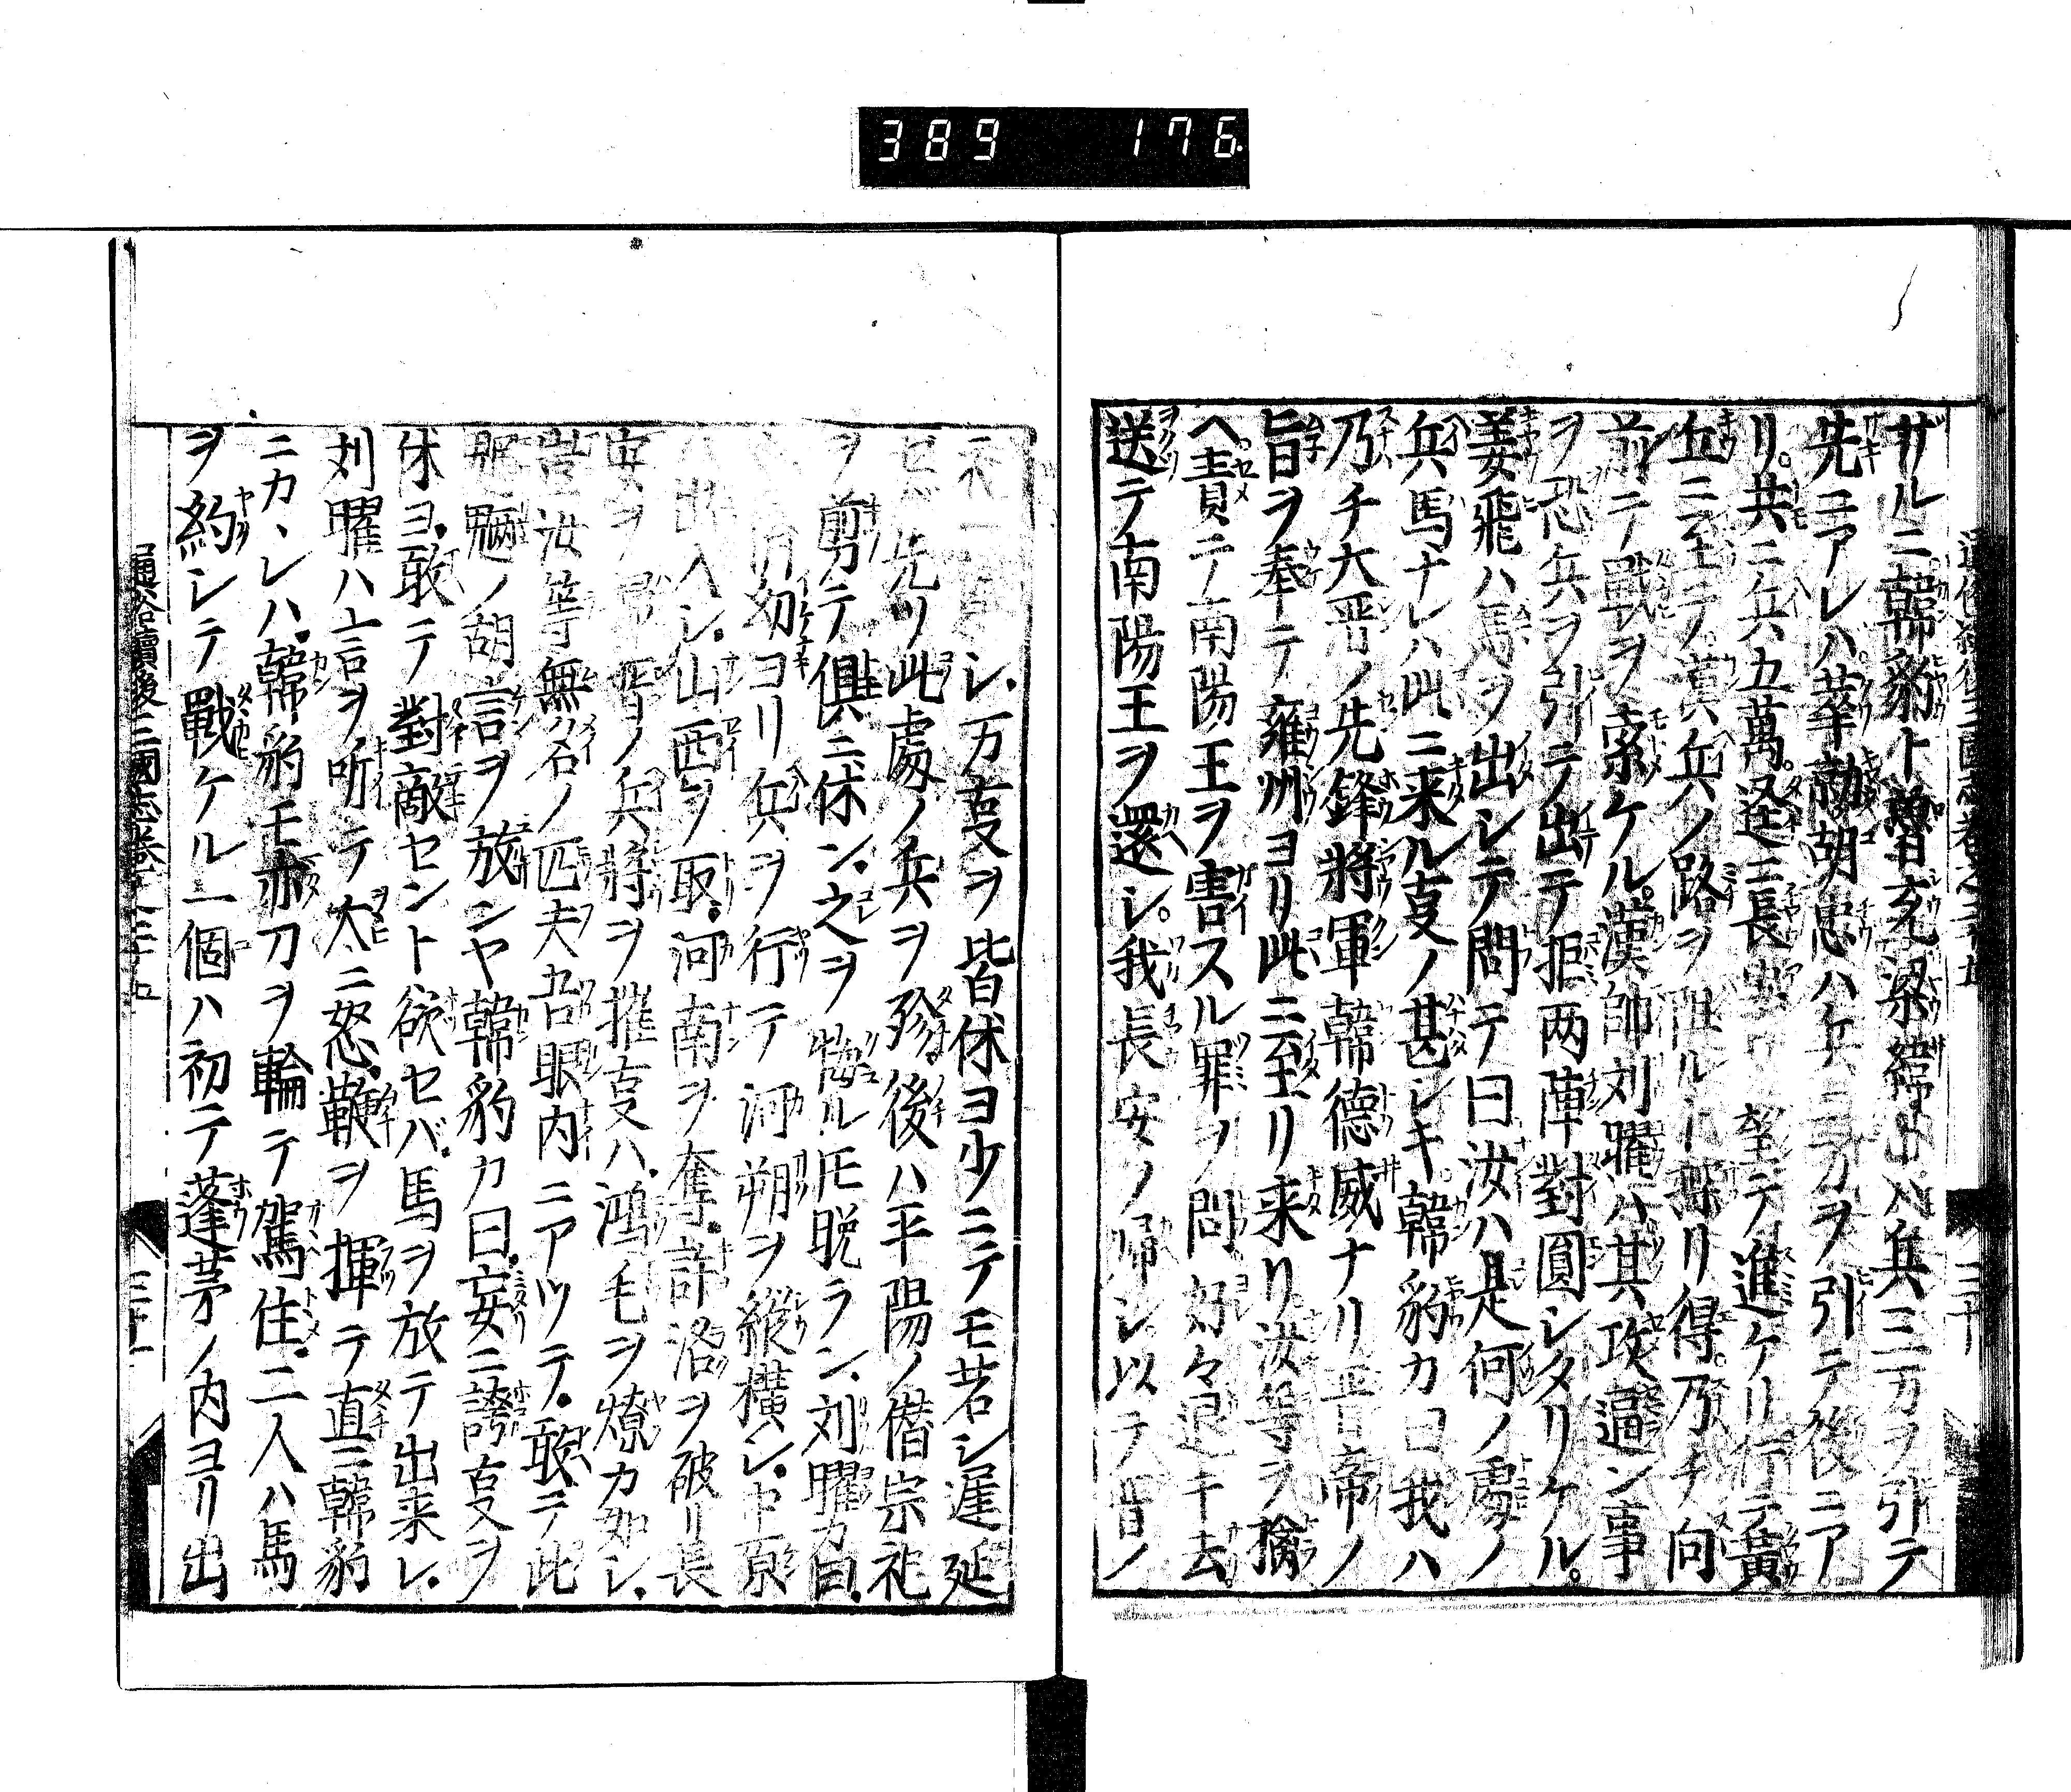 389 176
ザルニ韓豹ト魯充梁緯トハ兵三万ヲ引テ
先ニアレハ華勍胡忠ハ兵二万ヲ引テ後ニア
リ。共ニ兵五萬。逕ニ長安ヲ望テ進ケリ行テ黄
丘ニ至テ漢兵ノ路ヲ阻ルト探リ得。乃チ向
前テ戰ヲ索ケル。漢帥刘曜ハ其攻逼ン事
ヲ恐兵ヲ引テ出テ拒両陣對圓シタリケル。
姜飛ハ馬ヲ出シテ問テ曰汝ハ是何ノ處ノ
兵馬ナレハ此ニ来ル叓ノ甚シキ。韓豹カ曰我ハ
乃チ大晋ノ先鋒將軍韓德威ナリ晋帝ノ
旨ヲ奉テ雍州ヨリ此ニ至リ来リ汝等ヲ擒
ヘ。責テ南陽王ヲ害スル罪ヲ問好々退キ去。
送テ南陽王ヲ還シ。我長安ノ帰シ以テ昔ノ
シ、万叓ヲ皆休ヨ少ニテモ若シ遲延
セハ先ツ此處ノ兵ヲ殄。後ハ平陽ノ僣宗祀
ヲ剪テ俱ニ休ン、之ヲ悔ルモ晩ラン、刘曜カ曰、
幼ヨリ兵ヲ行テ河朔ヲ縱橫シ、中原
ニ出入シ、山西ヲ取、河南ヲ奪、許洛ヲ破リ長
安ヲ帰晋ノ兵將ヲ摧叓ハ、鴻毛ヲ燎カ如シ、
豈汝等無名ノ匹夫吾眼内ニアツテ、敢テ此
魍魎ノ胡言ヲ放ンヤ韓豹カ曰、妄ニ誇叓ヲ
休ヨ、敢テ對敵セント欲セバ、馬ヲ放テ出来レ、
刘曜ハ言ヲ听テ大ニ怒、鞭ヲ揮テ直ニ韓豹
ニカヽレハ、韓豹モ亦刀ヲ輪テ駕住、二人ハ馬
ヲ約シテ戰ケル一個ハ初テ蓬茅ノ内ヨリ出
通俗續後三國志卷之二十五